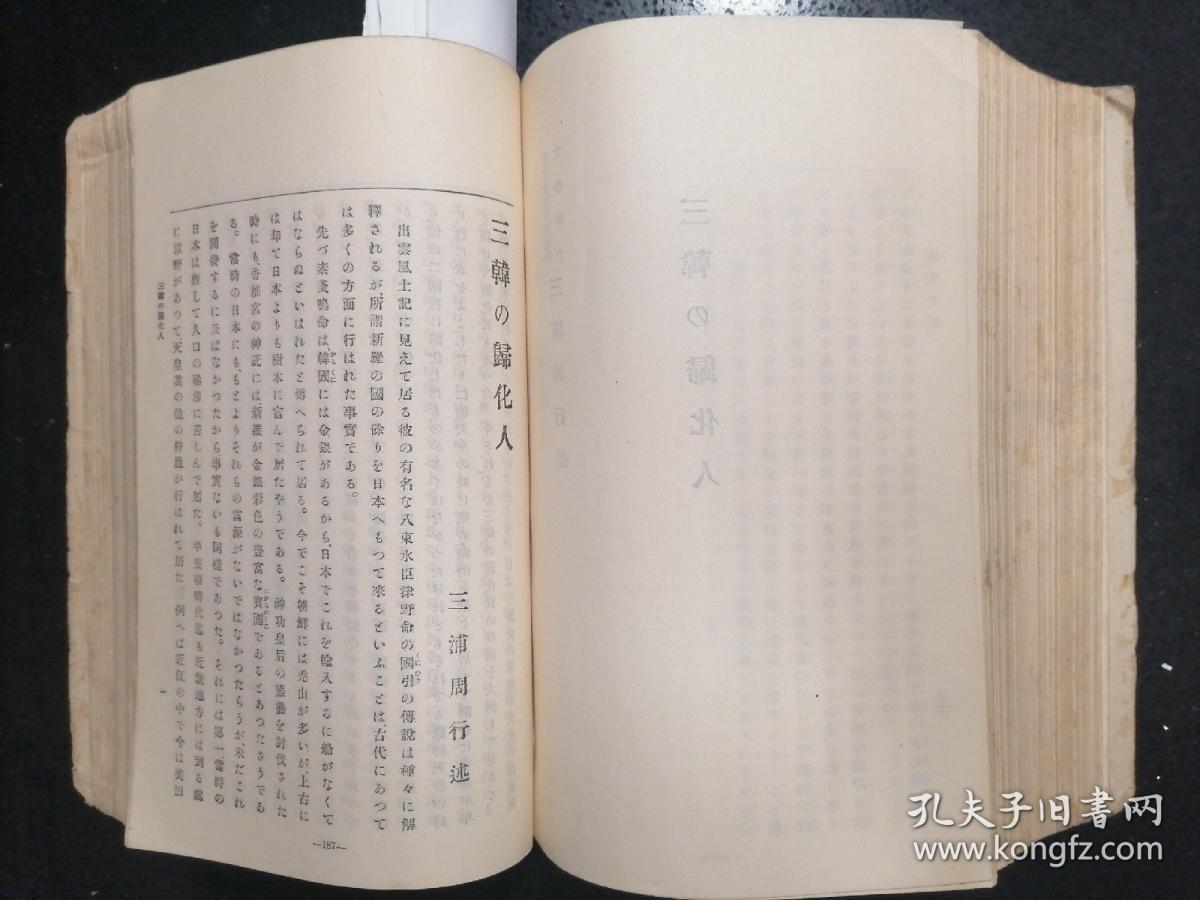 三韓の歸化人
三浦周行述
出雲風土記に見えて居る彼の有名な八束水臣津野命の國引の傳說は種々に解
釋されるが、所謂新羅の國の餘りを日本へもつて來るといふことは、古代にあつて
は多くの方面に行はれた事實である。
先づ素戔嗚命は、韓國には金銀があるから、日本でこれを輸入するに船がなくて
はならぬといはれたと傳へられて居る。今でこそ朝鮮には禿山が多いが、上古に
は却て日本よりも樹木に富んで居たさうである。神功皇后の熊襲を討伐された
時にも、香椎宮の神託には、新羅が金銀彩色の豊富な寶國であるとあつたさうであ
る。當時の日本にも、もとよりそれらの富源がないではなかつたらうが、未だこれ
を開發するに及ばなかつたから事實ないも同樣であつた。それには第一當時の
日本は槪して人口の稀薄に苦しんで居た。平安朝時代迄も近畿地方には到る處
に原野があつて天皇其の他の狩獵が行はれて居た。例へば近江の中で今は美田
三韓の歸化人
一
—187—
三韓の歸化人
孔夫子旧书网
www.kongfz.com